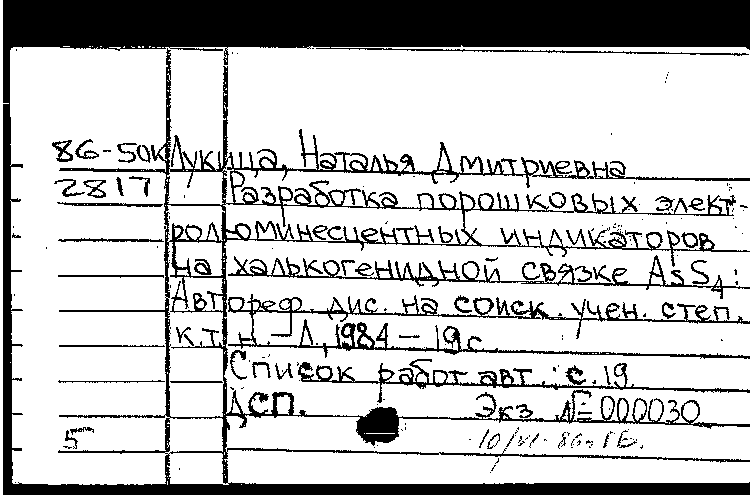 86-50К Лукица, Наталья Дмитриевна
2817 Разработка порошковых элект-
ролюминесцентных индикаторов
на халькогенидной связке AsS4:
Автореф. дис. на соиск. учен. степ.
к.т.н. - Л., 1984 - 19 с.
Список работ авт.: с. 19.
ДСП. Экз. № 000030
5 10/VI-86г.